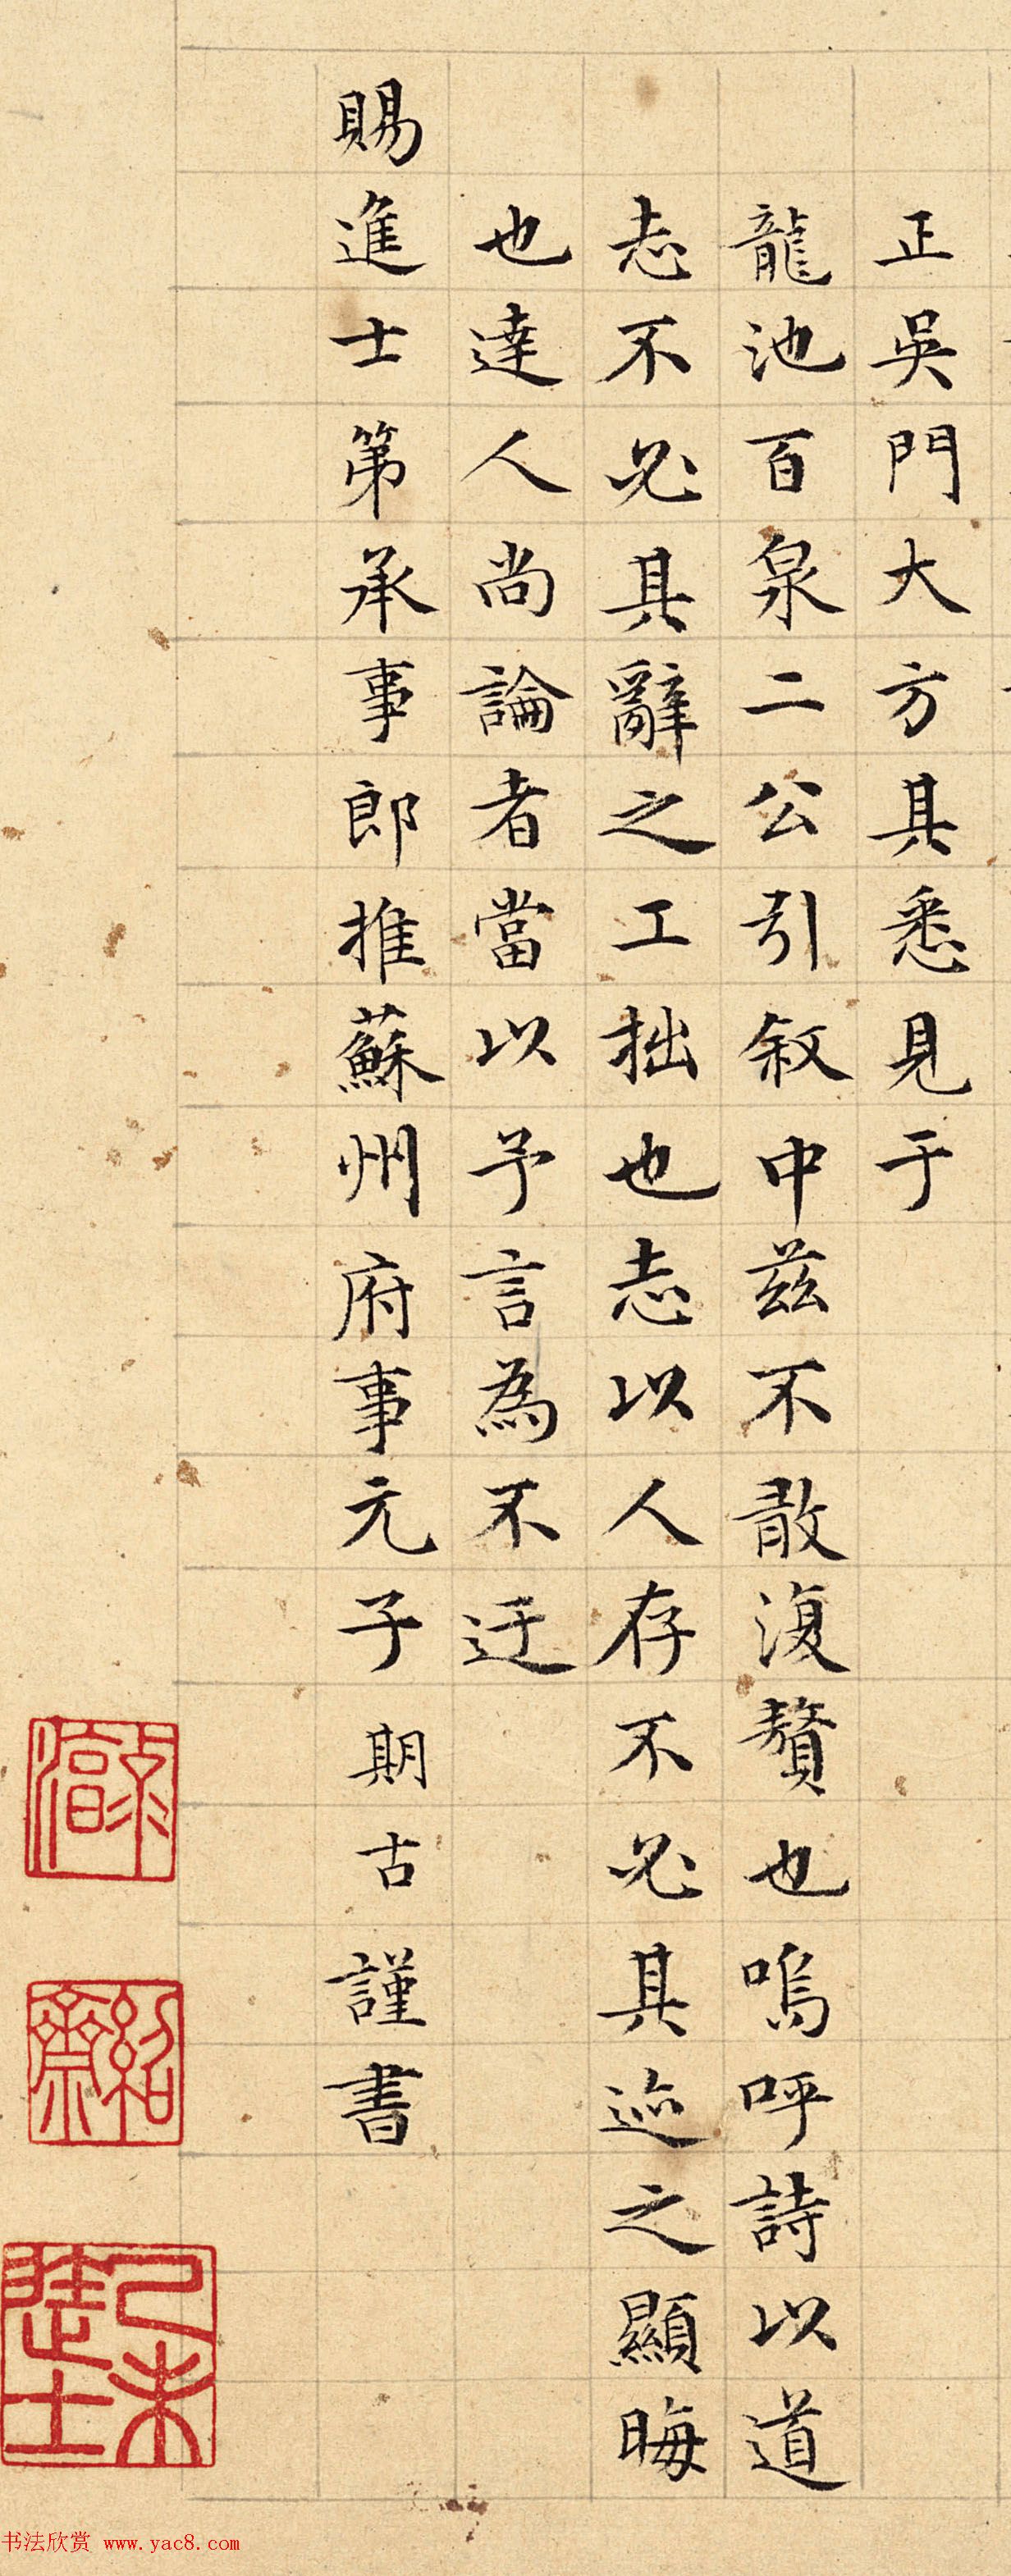 正吳門大方其悉見于
龍池百泉二公引敘中茲不敢復贅也嗚呼詩以道
志不必其辭之工拙也志以人存不必其迹之顯晦
也達人尚論者當以予言為不迂
賜進士第承事郎推蘇州府事元子期古謹書
己未進士
书法欣赏 www.yac8.com